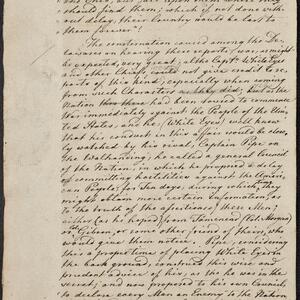 should find them; which if not done with-
out delay, their Country would be lost to
them forever!
The consternation caused among the De-
lawares on hearing these reports, was, as might
be expected, very great; altho Capt. White Eyes
and other Chiefs could not give credit to re-
ports of this kind, especially when coming
from such Characters
Nation had been advised to commence
War immediately against the People of the Uni-
ted States. he, (White Eyes) well knew
that his conduct in this affair would be close-
ly watched by his rival, Captain Pipe on
the Walhanding; he called a general Council
of the Nation, in which he proposed to delay
of committing hostilities against the Ameri-
can People, for Ten days, during which, they
might obtain more certain information, as
to the truth of the assertions of these Men,
either (as he hoped) from Tamenend (Col. Morgan)
or Gibson, or some other friend of theirs, who
would give them notice. Pipe, considering
this a proper time of placing White Eyes in
the back ground, construed this wise and
prudent advice of his, as if he was in the
secret; and now proposed to his own Council,
to declare every Man an Enemy to the Nation